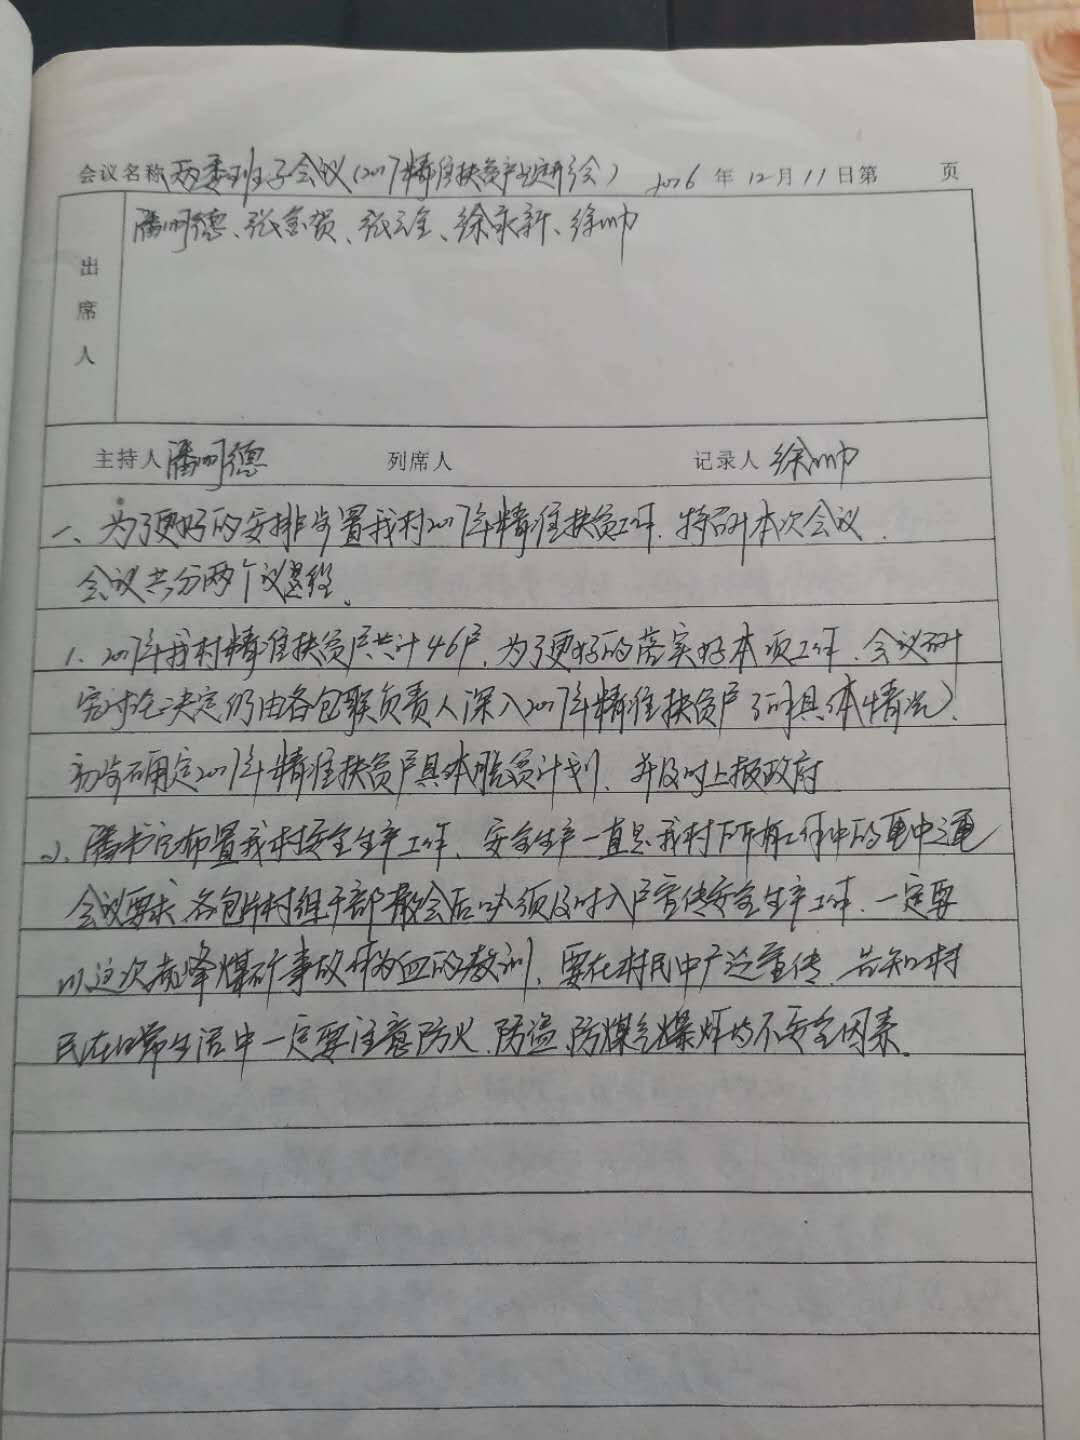 会议名称 两委班子会议(2017精准扶贫产业进会) 2016 年 12 月 11 日第 页
出席人
潘明德、张富贺、张云金、徐永新、徐帅
主持人 潘明德 列席人 记录人 徐帅
一、为了更好的安排步置我村2017年精准扶贫工作,特召开本次会议,
会议共分两个议题。
1、2017年我村精准扶贫户共计46户,为了更好的落实好本项工作,会议研
究讨论决定仍由各包联负责人深入2017年精准扶贫户了解具体情况,
初步确定2017年精准扶贫户具体脱贫计划,并及时上报政府
2、潘书记布置我村安全生产工作,安全生产一直是我村所有工作中的重中之重
会议要求,各包片村组干部散会后必须及时入户宣传安全生产工作,一定要
以这次赤峰煤矿事故作为血的教训,要在村民中广泛宣传,告知村
民在日常生活中一定要注意防火、防盗、防煤气爆炸的不安全因素。